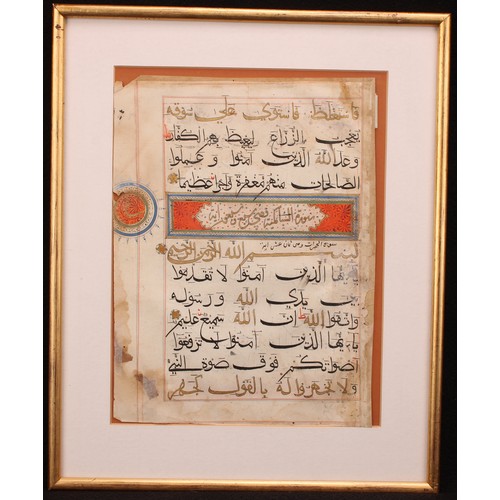 فاستغلظ فاستوى على سوقه
يعجب الزراع ليغيظ بهم الكفار
وعد الله الذين آمنوا و عملوا
الصالحات منهم مغفرة واجرا عظيما
سورة
سورة الحجرات وهي ثماني عشر آية
بسم الله الرحمن الرحيم
يايها الذين آمنوا لا تقدموا
بين يدي الله ورسوله
واتقوا الله ان الله سميع عليم
يايها الذين آمنوا لا ترفعوا
اصواتكم فوق صوت النبي
ولا تجهروا له بالقول كجهر